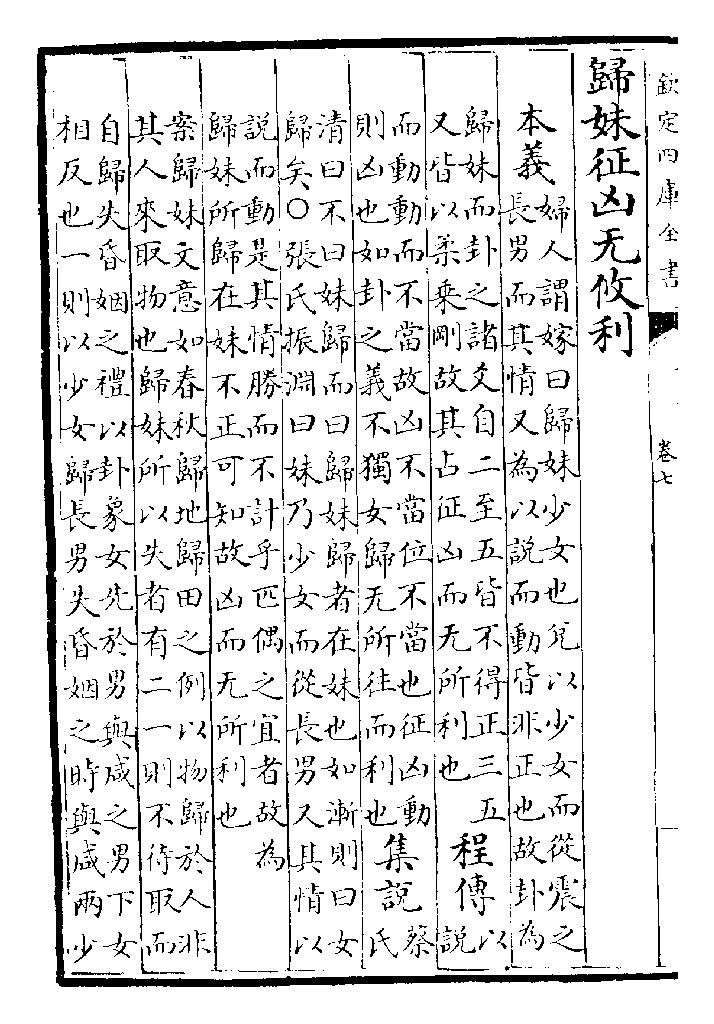 欽定四庫全書
卷七
歸妹征凶无攸利
本義
婦人謂嫁曰歸妹少女也兌以少女而從震之
長男而其情又為以說而動皆非正也故卦為
歸妹而卦之諸爻自二至五皆不得正三五
又皆以柔乘剛故其占征凶而无所利也
程傳
以
說
而動動而不當故凶不當位不當也征凶動
則凶也如卦之義不獨女歸无所往而利也
集說
蔡
氏
清曰不曰妹歸而曰歸妹歸者在妹也如漸則曰女
歸矣○張氏振淵曰妹乃少女而從長男又其情以
說而動是其情勝而不計乎匹偶之宜者故為
歸妹所歸在妹不正可知故凶而无所利也
案歸妹文意如春秋歸地歸田之例以物歸於人非
其人來取物也歸妹所以失者有二一則不待取而
自歸失昏姻之禮以卦象女先於男與咸之男下女
相反也一則以少女歸長男失昏姻之時與咸兩少